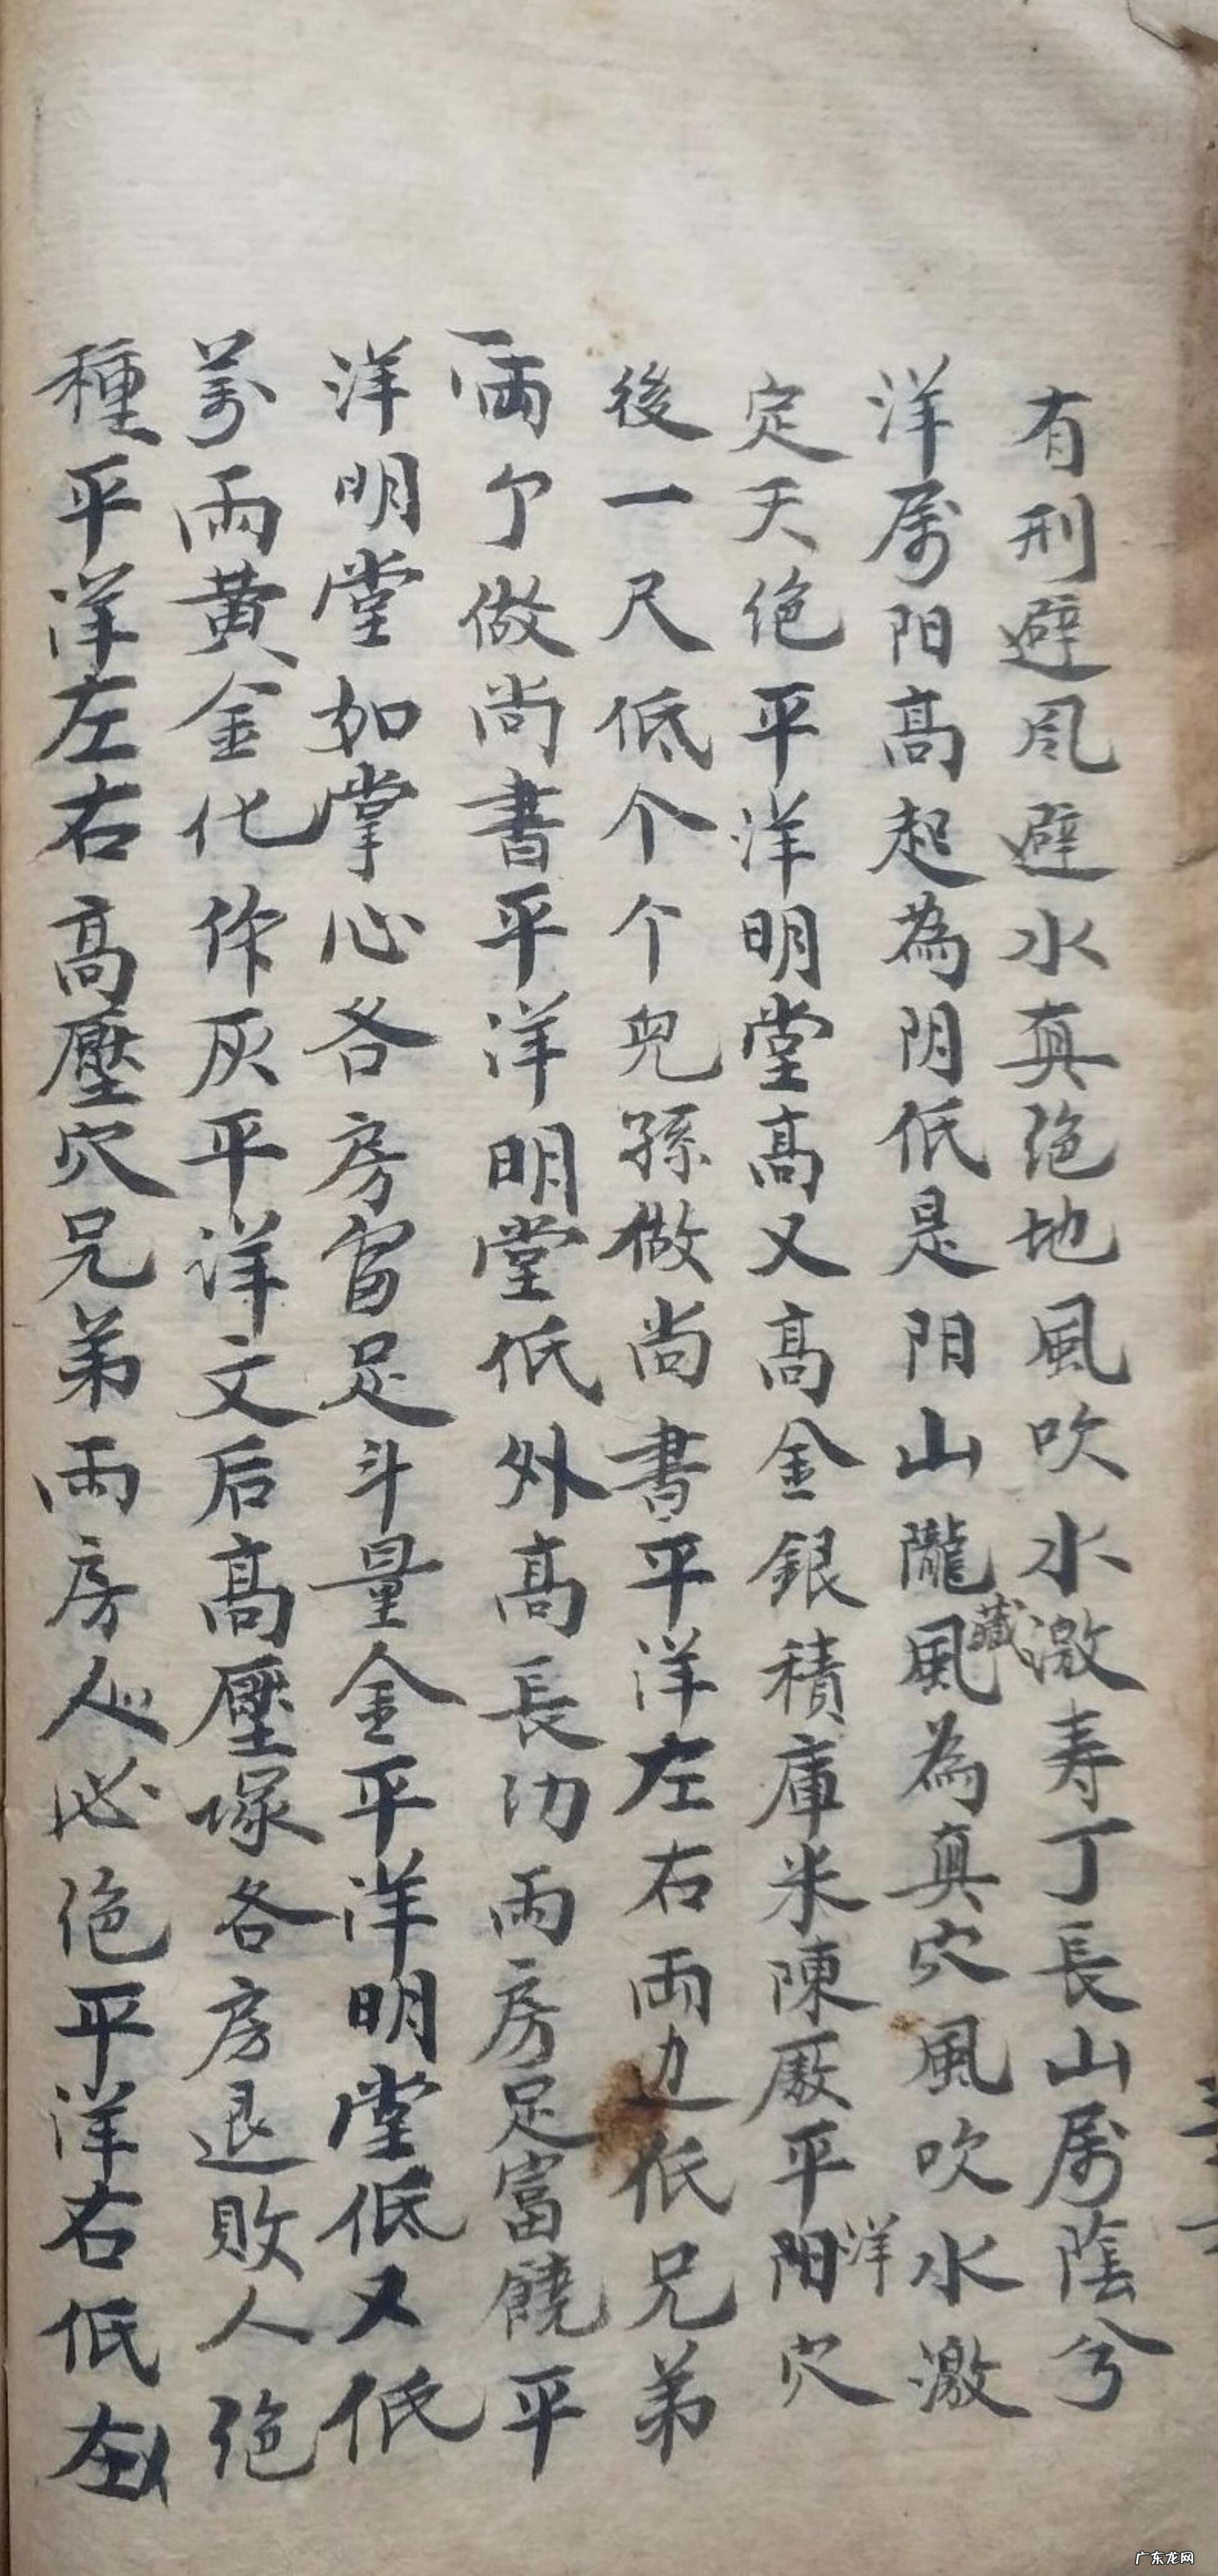 有刑避风避水真绝地風吹水激寿丁長山属蔭兮
洋属阳高起為阴低是阳山隴風藏為真穴風吹水激
定天绝平洋明堂高又高金銀積庫米陳廒平阳洋穴
後一尺低个个兒孫做尚書平洋左右兩边低兄弟
兩个做尚書平洋明堂低外高長沕兩房足富饒平
洋明堂如掌心各房富足斗量金平洋明堂低又低
萬兩黄金化作灰平洋文后高壓塚各房退敗人绝
種平洋左右高壓穴兄弟兩房人必绝平洋右低左
广东龙网